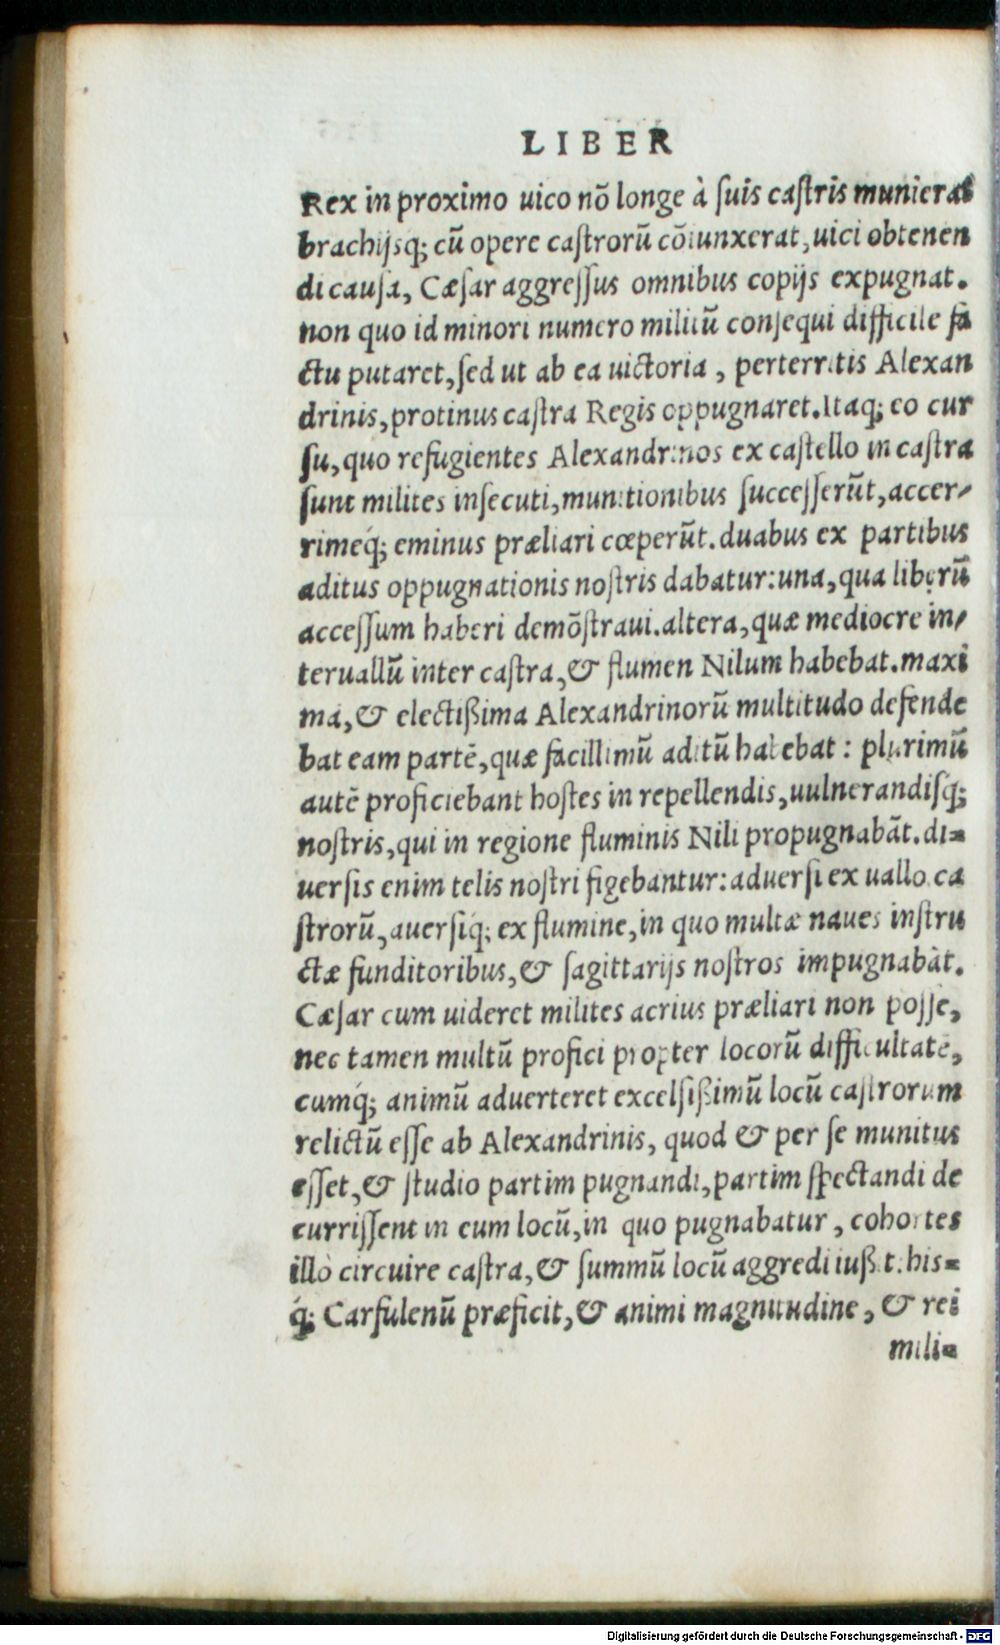 LIBER
Rex in proximo uico nō longe à suis castris munierat
brachijsq; cū opere castrorū cōiunxerat, uici obtenen
di causa, Cæsar aggressus omnibus copijs expugnat.
non quo id minori numero militū consequi difficile fa
ctu putaret, sed ut ab ea uictoria, perterritis Alexan
drinis, protinus castra Regis oppugnaret. Itaq; eo cur
su, quo refugientes Alexandrinos ex castello in castra
sunt milites insecuti, munitionibus successerūt, accer-
rimeq́; eminus præliari cœperūt. duabus ex partibus
aditus oppugnationis nostris dabatur: una, qua liberū
accessum haberi demōstraui. altera, quæ mediocre in-
teruallū inter castra, & flumen Nilum habebat. maxi
ma, & electißima Alexandrinorū multitudo defende
bat eam partē, quæ facillimū aditū habebat: plurimū
autē proficiebant hostes in repellendis, uulnerandisq́;
nostris, qui in regione fluminis Nili propugnabāt. di-
uersis enim telis nostri figebantur: aduersi ex uallo ca
strorū, auersiq́; ex flumine, in quo multæ naues instru
ctæ funditoribus, & sagittarijs nostros impugnabāt.
Cæsar cum uideret milites acrius præliari non posse,
nec tamen multū profici propter locorū difficultatē,
cumq́; animū aduerteret excelsißimū locū castrorum
relictū esse ab Alexandrinis, quod & per se munitus
esset, & studio partim pugnandi, partim spectandi de
currissent in eum locū, in quo pugnabatur, cohortes
illò circuire castra, & summū locū aggredi iußit: his-
q́; Carfulenū præficit, & animi magnitudine, & rei
mili-
Digitalisierung gefördert durch die Deutsche Forschungsgemeinschaft - DFG